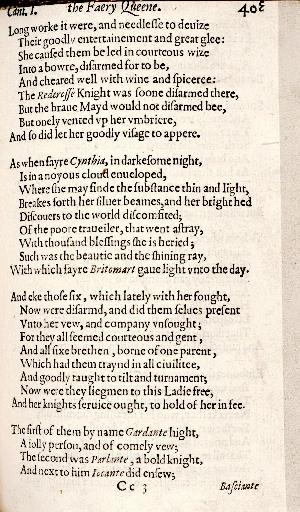 Cant. I. the Faery Queene. 40
Long worke it were, and needlesse to deuize
Their goodly entertainement and great glee:
She caused them be led in courteous wize
Into a bowre, disarmed for to be,
And cheared well with wine and spiceree:
The Redcrosse Knight was soone disarmed there,
But the braue Mayd would not disarmed bee,
But onely vented vp her vmbriere,
And so did let her goodly visage to appere.
As when fayre Cynthia, in darkesome night,
Is in a noyous cloud enueloped,
Where she may finde the substance thin and light,
Breakes forth her siluer beames, and her bright hed
Discouers to the world discomfited;
Of the poore traueiler, that went astray,
With thousand blessings she is heried;
Such was the beautie and the shining ray,
With which fayre Britomart gaue light vnto the day.
And eke those six, which lately with her fought,
Now were disarmd, and did them selues present
Vnto her vew, and company vnsought;
For they all seemed courteous and gent,
And all sixe brethen, borne of one parent,
Which had them traynd in all ciuilitee,
And goodly taught to tilt and turnament;
Now were they liegmen to this Ladie free,
And her knights seruice ought, to hold of her in fee.
The first of them by name Gardante hight,
A iolly person, and of comely vew;
The second was Parlante, a bold knight,
And next to him Iocante did ensew;
Cc 3 Basciante